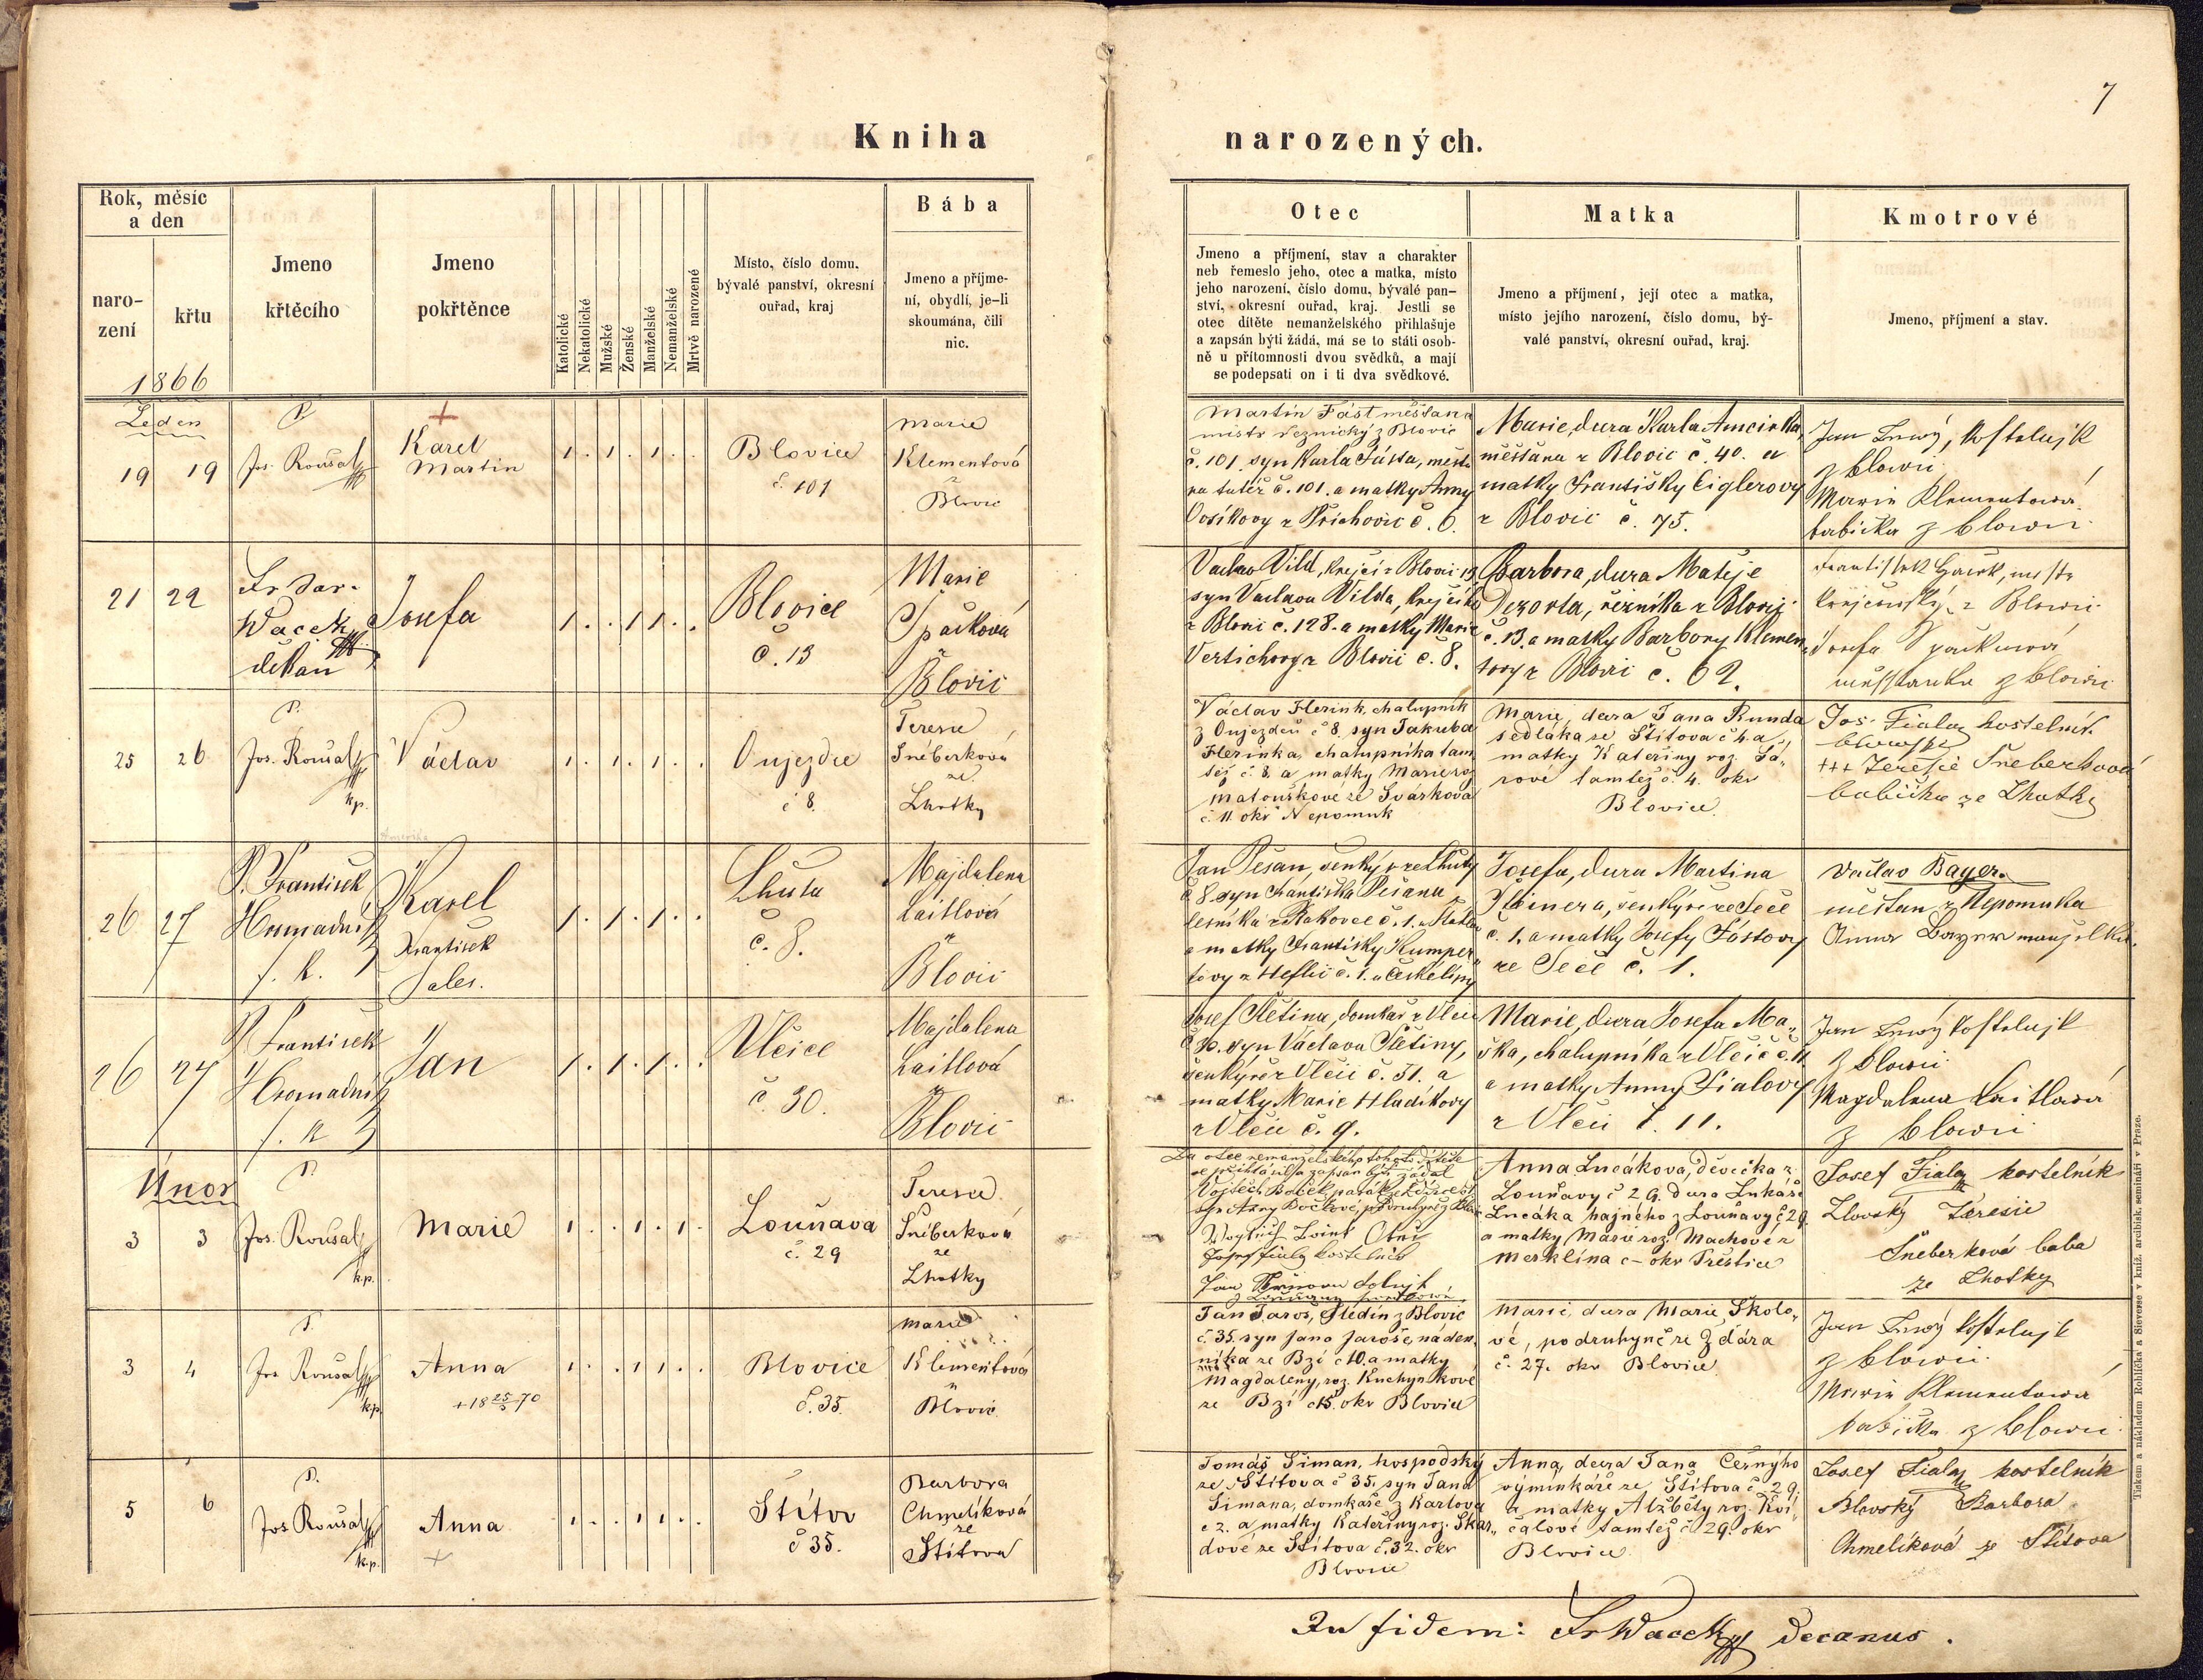 7
Kniha narozených.
Rok, měsíc a den
narození
křtu
Jmeno křtěcího
Jmeno pokřtěnce
Katolické
Nekatolické
Mužské
Ženské
Manželské
Nemanželské
Mrtvě narozené
Místo, číslo domu,
bývalé panství, okresní
ouřad, kraj
Bába
Jmeno a příjme-
ní, obydlí, je-li
skoumána, čili
nic.
Otec
Jmeno a příjmení, stav a charakter
neb řemeslo jeho, otec a matka, místo
jeho narození, číslo domu, bývalé pan-
ství, okresní ouřad, kraj. Jestli se
otec dítěte nemanželského přihlašuje
a zapsán býti žádá, má se to státi osob-
ně u přítomnosti dvou svědků, a mají
se podepsati on i ti dva svědkové.
Matka
Jmeno a příjmení, její otec a matka,
místo jejího narození, číslo domu, bý-
valé panství, okresní ouřad, kraj.
Kmotrové
Jmeno, příjmení a stav.
1866
Leden
19 19
P.
Jos. Roušal
Karel
Martin
1 . 1 . 1 . .
Blovice
č. 101
Marie
Klementová
z
Blovic
Martin Fást měšťan a
mistr řeznický z Blovic
č. 101. syn Karla Fásta, měště
na tutéž č. 101. a matky Anny
z Příchovic č. 6.
Marie, dcera Karla
měšťana z Blovic č. 40. a
matky Františky Ciglerovy
z Blovic č. 75.
Jan
z Blowic
Marie Klementowá
babička z Blowic
21 22
Fr. Sar.
Wacek
děkan
Josefa
1 . . 1 1 . .
Blovice
č. 13
Marie
Špačková
z
Blovic
Václav Vild, krejčí z Blovic 13
syn Václava Vilda, krejčího
z Blovic č. 128. a matky Marie
z Blovic č. 8.
Barbora, dcera Matěje
Dezorta, řezníka z Blovic
č. 13. a matky Barbory Klemen
tovy z Blovic č. 62.
Josefa Špačkowá
z Blowic
25 26
P.
Jos. Roušal
kp.
Václav
1 . 1 . 1 . .
Oujezdce
č 8.
Terezie
Šneberková
ze
Lhotky
Václav Flerink, chalupník
z Oujezdce č 8, syn Jakuba
Flerinka, chalupníka tam
též č. 8, a matky Marie roz
Matouškové ze Svárkova
č. 11 okr Nepomuk
Marie, dcera Jana Runda
sedláka ze Štítova č 4. a
matky Kateřiny roz. Šá-
rové tamtéž č. 4. okr
Blovice.
Jos. Fiala kostelník
+++ Terezie Šneberková
babička ze Lhotky
26 27
P. František
Hromadník
f. k.
Karel
František
Sales.
1 . 1 . 1 . .
Lhuta
č. 8.
Majdalena
Laitlová
z
Blovic
Jan Pešan, šenkýř ze Lhuty
č 8. syn Františka Pešana
a matky Františky
č. 1. u České Lípy
Josefa, dcera Martina
šenkýře ze Seče
č. 1. a matky Josefy Fástovy
ze Seče č. 1.
Václav Bayer.
měšťan z Nepomuka
Anna Bayer manželka.
26 27
P. František
Hromadník
f. k.
Jan
1 . 1 . 1 . .
Vlčice
č. 30.
Majdalena
Laitlová
z
Blovic
Josef Štětina, domkář z Vlčic
č 30. syn Václava Štětiny,
šenkýře z Vlčic č. 31. a
matky Marie Hladíkovy
z Vlčic č. 9.
Marie, dcera Josefa Ma-
ška, chalupníka z Vlčic č. 11
a matky Anny Fialovy
z Vlčic č. 11.
Jan
z Blowic
Magdalena Laitlowá
z Blowic
Únor
3 3
P.
Jos. Roušal
kp.
Marie
1 . . 1 . 1 .
Louňava
č. 29
Terezie
Šneberková
ze
Lhotky
Za otce nemanželského tohoto dítěte
se přihlásil a zapsán býti žádal
Vojtěch
Josef Fiala kostelník
Jan
Anna Lucáková, děvečka z
Louňavy č 29. dcera Lukáše
Lucáka hajného z Louňavy č 29
a matky Marie roz. Machové z
Merklína č – okr Přeštice
Josef Fiala kostelník
Terezie
Šneberková baba
ze Lhotky
3 4
P.
Jos. Roušal
kp.
Anna
+ 18 25/5 70
1 . . 1 1 . .
Blovice
č. 35.
Marie
Klementová
z
Blovic
Jan Jaroš, z Blovic
č. 35. syn Jana Jaroše, náden-
níka ze Bzí č 10. a matky
Magdaleny, roz. Kuchynkové
ze Bzí č 15. okr Blovice
Marie, dcera Marie Školo-
vé, podruhyně ze Ždára
č. 27. okr Blovice
Jan
z Blowic
Marie Klementowá
babička z Blowic
5 6
P.
Jos. Roušal
kp.
Anna
+
1 . . 1 1 . .
Štítov
č 35.
Barbora
Chmelíková
ze
Štítova
Tomáš Šiman, hospodský
ze Štítova č 35. syn Jana
Šimana, domkáře z Karlova
č 2. a matky Kateřiny roz. Skar-
dové ze Štítova č. 32. okr
Blovice
Anna, dcera Jana Černýho
výminkáře ze Štítova č 29.
a matky Alžběty roz. Kvi-
čalové tamtéž č 29. okr
Blovice.
Josef Fiala kostelník
Blovský Barbora
Chmelíková ze Štítova
In fidem: Fr Wacek Decanus.
Tiskem a nákladem Rohlíčka a Sieverse v kníž. arcibisk. semináři v Praze.